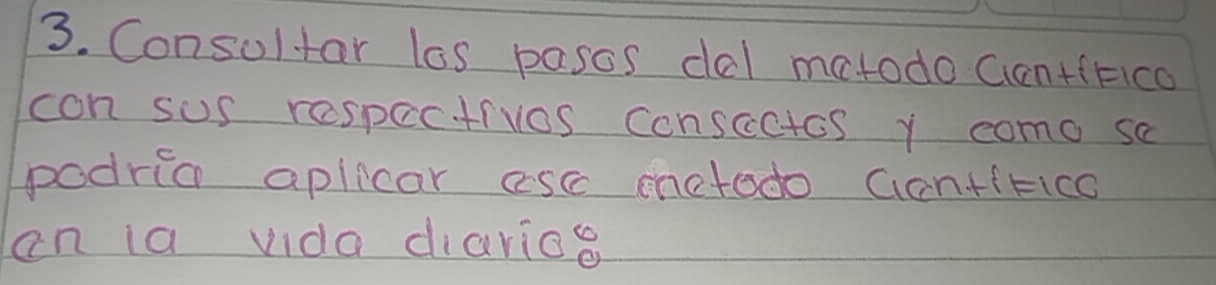 3. Consultar los pasos del metodo Cientifico
con sus respectivos Consectos y como se
podría aplicar ese metodo Cientifico
en la vida diaria: